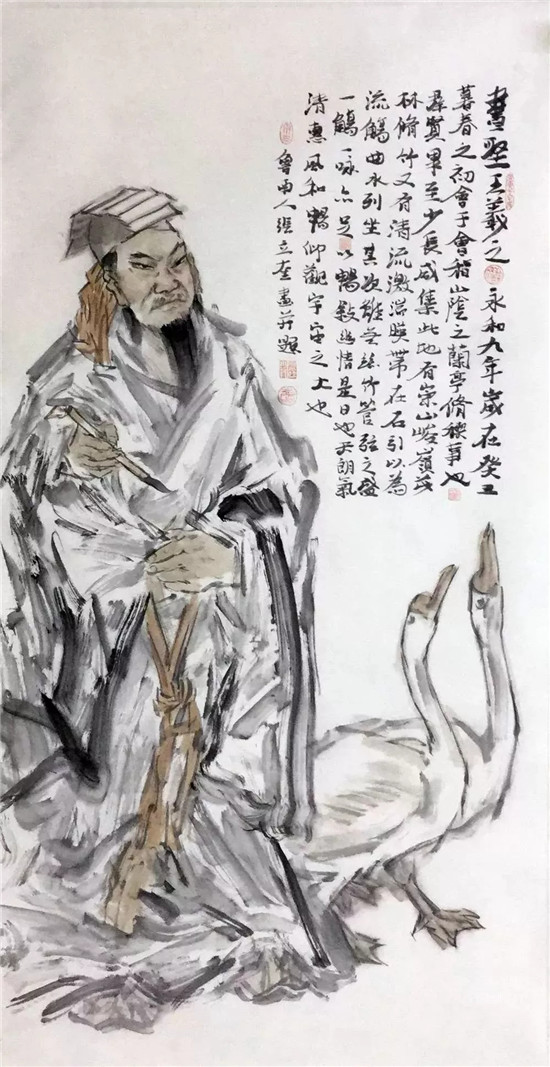 書聖王羲之 永和九年歲在癸丑
暮春之初會于會稽山陰之蘭亭脩稧事也
羣賢畢至少長咸集此地有崇山峻嶺茂
林脩竹又有清流激湍暎帶左右引以為
流觴曲水列坐其次雖無絲竹管弦之盛
一觴一詠亦足以暢敘幽情是日也天朗氣
清惠風和暢仰觀宇宙之大也
魯南人張立奎畫并題